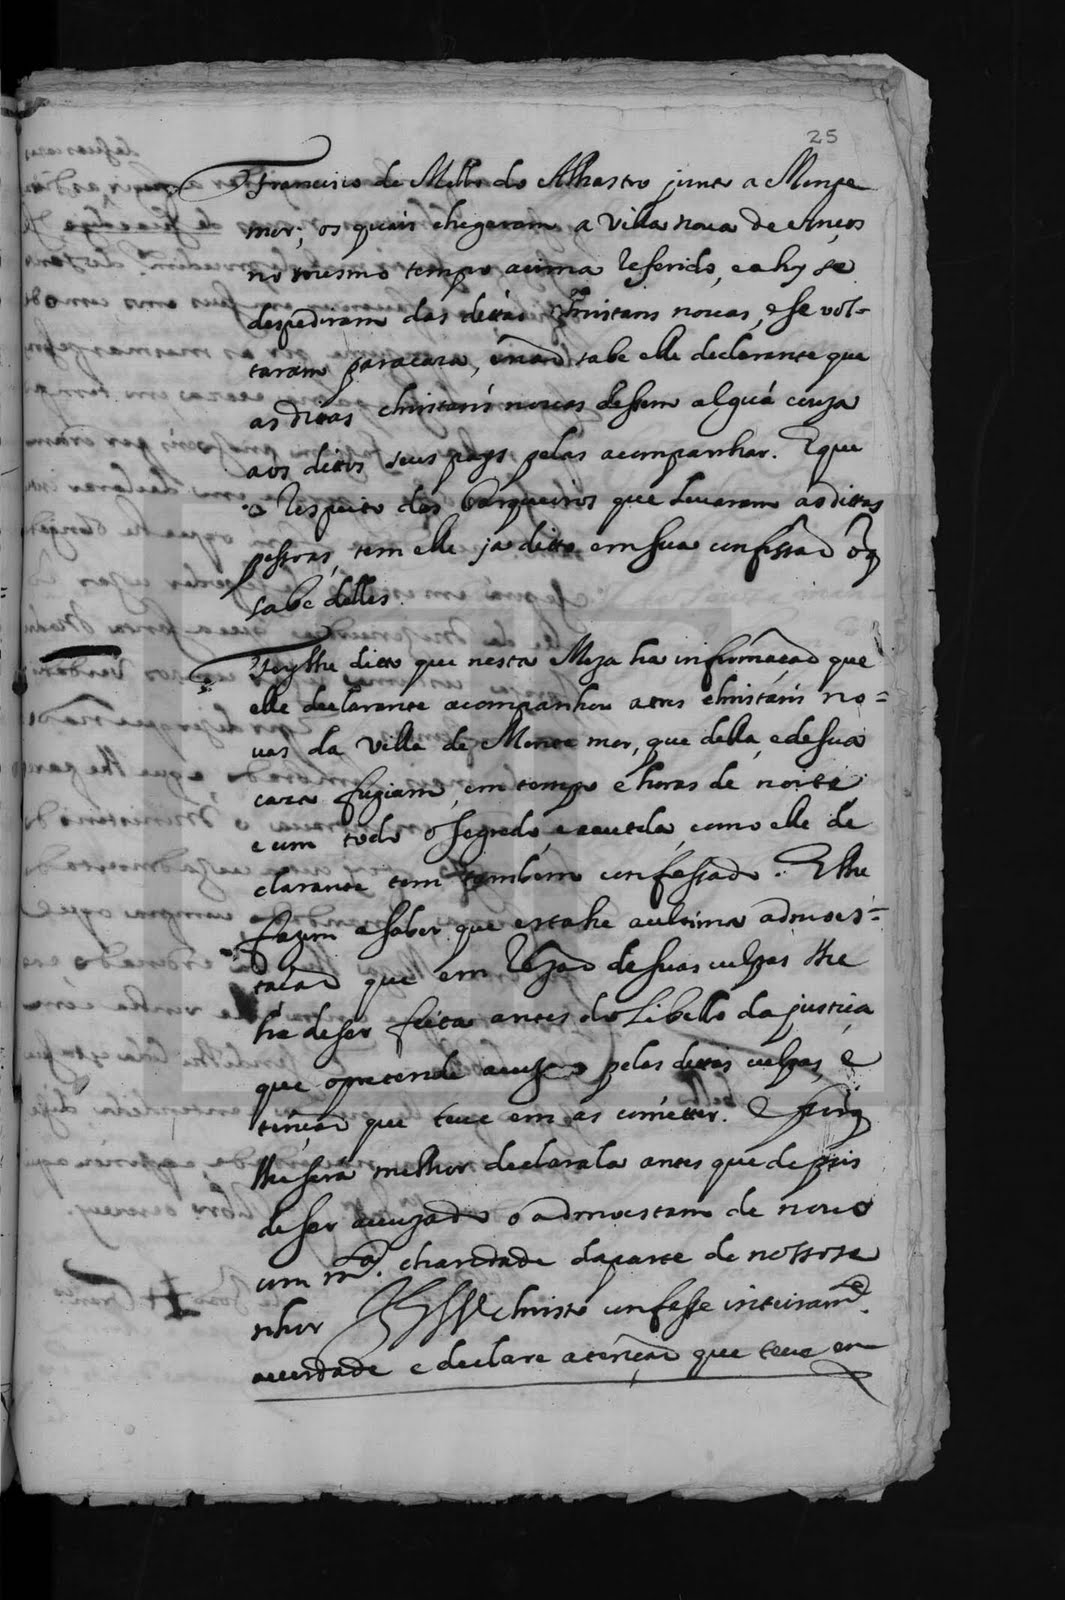 25
Francisco de Mello do Alhastro junto a Monte
mor; os quais chegaram a Villa noua de Anços
no mesmo tempo acima referido, e ahy se
despediram das dittas christans nouas, e se vol-
taram para caza, e naõ sabe elle declarante que
as dittas christans nouas dessem algũa couza
aos dittos seus pays pelas acompanhar. E que
a Respeito dos barqueiros que Leuaram as dittas
pessoas, tem elle ja ditto em sua confissaõ o q̃
sabe delles.
Foylhe ditto que nesta Meza ha informaçaõ que
elle declarante acompanhou a tres christãns no=
uas da Villa de Monte mor, que della, e de sua
caza fugiam, em tempo e horas de noite
e com todo o segredo, e cautela, como elle de
clarante tem tambem confessado. E lhe
fazem a saber que esta he a ultima admoes=
taçaõ que em Rezaõ de suas culpas lhe
ha de ser feita antes do Libello da justiça
que o pretende acuzar pelas dittas culpas, e
tençaõ que teue em as cometter. E porq̃
lhe será melhor declarala antes que depois
de ser acuzado o admoestam de nouo
com m.ta charidade da parte de nosso se
nhor Jesu christo confesse inteiram.te
a uerdade e declare a tençaõ que teue em